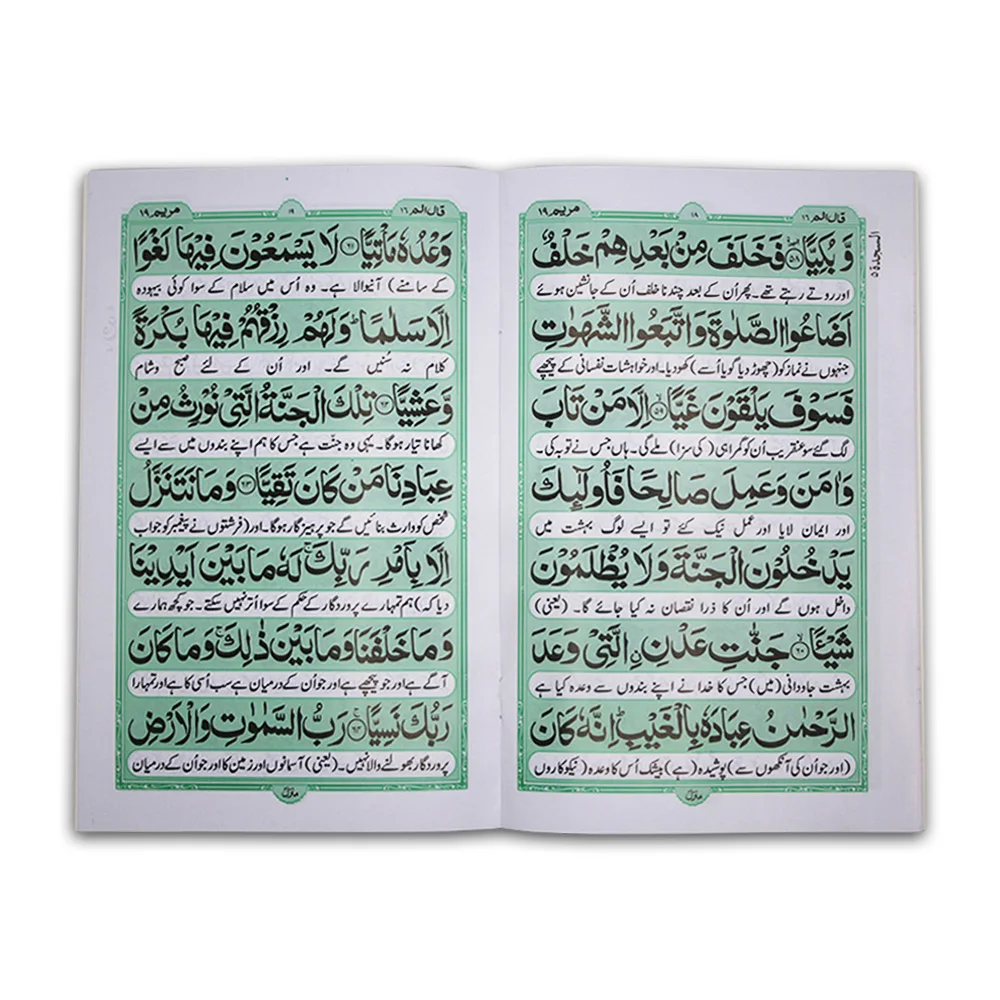 قال الم ۱۶
۱۸
مریم ۱۹
السجدة ۵
وَّ بُكِيًّا ۩ ﴿۵۸﴾ فَخَلَفَ مِنْۢ بَعْدِهِمْ خَلْفٌ
اور روتے رہتے تھے۔ پھر اُن کے بعد چند ناخلف اُن کے جانشین ہوئے
اَضَاعُوا الصَّلٰوةَ وَ اتَّبَعُوا الشَّهَوٰتِ
جنہوں نے نماز کو (چھوڑ دیا گویا اُسے) کھو دیا۔ اور خواہشات نفسانی کے پیچھے
فَسَوْفَ يَلْقَوْنَ غَيًّا ﴿۵۹﴾ اِلَّا مَنْ تَابَ
لگ گئے سو عنقریب اُن کو گمراہی (کی سزا) ملے گی۔ ہاں جس نے توبہ کی۔
وَ اٰمَنَ وَ عَمِلَ صَالِحًا فَاُولٰٓئِكَ
اور ایمان لایا اور عمل نیک کئے تو ایسے لوگ بہشت میں
يَدْخُلُوْنَ الْجَنَّةَ وَ لَا يُظْلَمُوْنَ
داخل ہوں گے اور اُن کا ذرا نقصان نہ کیا جائے گا۔ (یعنی)
شَيْـًٔا ﴿۶۰﴾ جَنّٰتِ عَدْنِ ࣙالَّتِيْ وَعَدَ
بہشت جاودانی (میں) جس کا خدا نے اپنے بندوں سے وعدہ کیا ہے
الرَّحْمٰنُ عِبَادَهٗ بِالْغَيْبِ ؕ اِنَّهٗ كَانَ
(اور جو اُن کی آنکھوں سے) پوشیدہ (ہے) بیشک اُس کا وعدہ (نیکوکاروں
منزل ۴
قال الم ۱۶
۱۹
مریم ۱۹
وَعْدُهٗ مَاْتِيًّا ﴿۶۱﴾ لَا يَسْمَعُوْنَ فِيْهَا لَغْوًا
کے سامنے) آنیوالا ہے۔ وہ اُس میں سلام کے سوا کوئی بیہودہ
اِلَّا سَلٰمًا ؕ وَ لَهُمْ رِزْقُهُمْ فِيْهَا بُكْرَةً
کلام نہ سُنیں گے۔ اور اُن کے لئے صبح وشام
وَّ عَشِيًّا ﴿۶۲﴾ تِلْكَ الْجَنَّةُ الَّتِيْ نُوْرِثُ مِنْ
کھانا تیار ہوگا۔ یہی وہ جنّت ہے جس کا ہم اپنے بندوں میں سے ایسے
عِبَادِنَا مَنْ كَانَ تَقِيًّا ﴿۶۳﴾ وَ مَا نَتَنَزَّلُ
شخص کو وارث بنائیں گے جو پرہیزگار ہوگا۔ اور (فرشتوں نے پیغمبر کو جواب
اِلَّا بِاَمْرِ رَبِّكَ ۚ لَهٗ مَا بَيْنَ اَيْدِيْنَا
دیا کہ) ہم تمہارے پروردگار کے حکم کے سوا اُتر نہیں سکتے۔ جو کچھ ہمارے
وَ مَا خَلْفَنَا وَ مَا بَيْنَ ذٰلِكَ ۚ وَ مَا كَانَ
آگے ہے اور جو پیچھے ہے اور جو اُن کے درمیان ہے سب اُسی کا ہے اور تمہارا
رَبُّكَ نَسِيًّا ﴿۶۴﴾ رَبُّ السَّمٰوٰتِ وَ الْاَرْضِ
پروردگار بھولنے والا نہیں۔ (یعنی) آسمانوں اور زمین کا اور جو اُن کے درمیان
منزل ۴